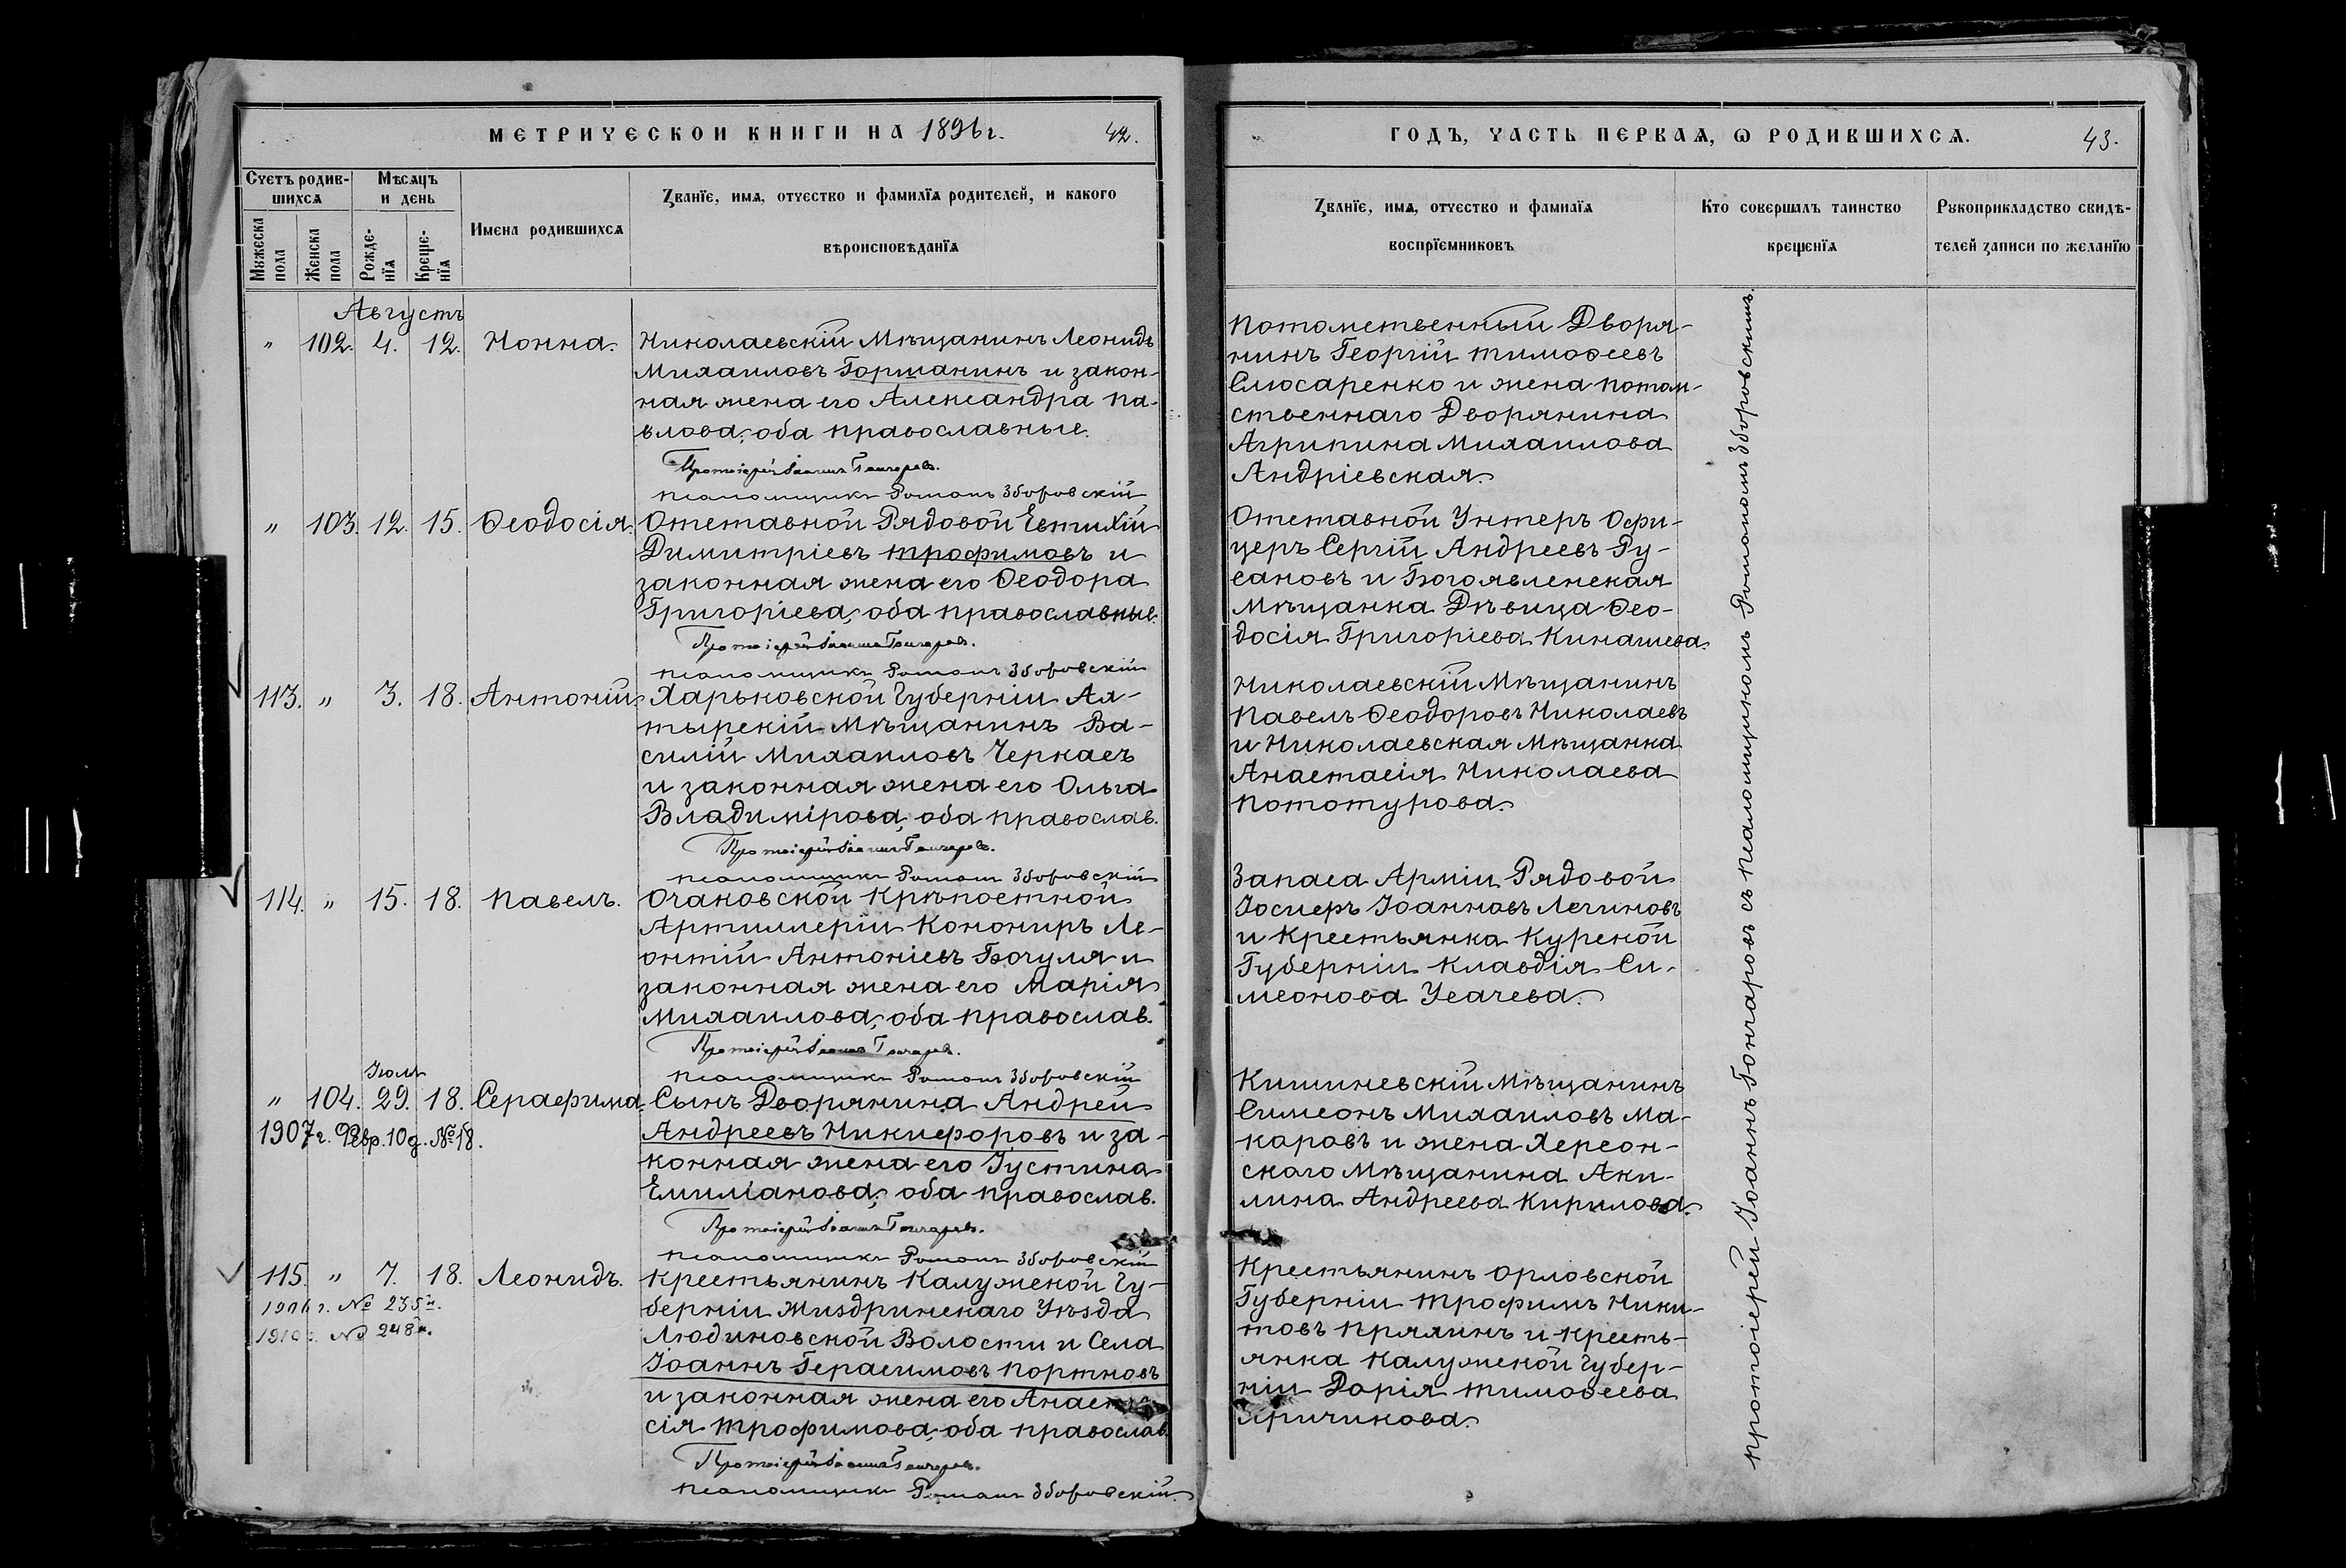 МЕТРИЧЕСКОЙ КНИГИ НА 1896 г.
42.
Счетъ родив-
шихся
Мѣсяцъ
и день
Мужеска
пола
Женска
пола
Рожде-
нія
Креще-
нія
Имена родившихся
Званіе, имя, отчество и фамилія родителей, и какого
вѣроисповѣданія
Августъ
" 102. 4. 12. Нонна.
Николаевскій Мѣщанинъ Леонидъ
Михаиловъ Горшанинъ и закон-
ная жена его Александра Па-
влова, оба православные.
Протоіерей Іоаннъ Гончаровъ.
Псаломщикъ Романъ Зборовскій
" 103. 12. 15. Ѳеодосія.
Отставной Рядовой Евтихій
Димитріевъ Трофимовъ и
законная жена его Ѳеодора
Григоріева, оба православные.
Протоіерей Іоаннъ Гончаровъ.
Псаломщикъ Романъ Зборовскій
113. " 3. 18. Антоній.
Харьковской Губерніи Ах-
тырскій Мѣщанинъ Ва-
силій Михаиловъ Черкасъ
и законная жена его Ольга
Владимірова, оба православ.
Протоіерей Іоаннъ Гончаровъ.
Псаломщикъ Романъ Зборовскій
114. " 15. 18. Павелъ.
Очаковской Крѣпостной
Артиллеріи Конониръ Ле-
онтій Антоніевъ Бочуля и
законная жена его Марія
Михаилова, оба православ.
Протоіерей Іоаннъ Гончаровъ.
Псаломщикъ Романъ Зборовскій
Іюля
" 104. 29. 18. Серафима.
1907 г. Февр. 10 д. № 18.
Сынъ Дворянина Андрей
Андреевъ Никифоровъ и за-
конная жена его Іустина
Емиліанова, оба православ.
Протоіерей Іоаннъ Гончаровъ.
Псаломщикъ Романъ Зборовскій
115. " 7. 18. Леонидъ.
1906 г. № 235й.
1910 г. № 248й.
Крестьянинъ Калужской Гу-
берніи Жиздринскаго Уѣзда
Людиновской Волости и Села
Іоаннъ Герасимовъ Портновъ
и законная жена его Анаст
сія Трофимова, оба православ.
Протоіерей Іоаннъ Гончаровъ.
Псаломщикъ Романъ Зборовскій.
ГОДЪ, ЧАСТЬ ПЕРВАЯ, Ѡ РОДИВШИХСЯ.
43.
Званіе, имя, отчество и фамилія
воспріемниковъ
Кто совершалъ таинство
крещенія
Рукоприкладство свидѣ-
телей записи по желанію
Потомственный Дворя-
нинъ Георгій Тимоѳеевъ
Слюсаренко и жена потом-
ственнаго Дворянина
Агрипина Михаилова
Андріевская.
Отставной Унтеръ Офи-
церъ Сергій Андреевъ Ру-
сановъ и Богоявленская
Мѣщанка Дѣвица Ѳео-
досія Григоріева Кинашева.
Николаевскій Мѣщанинъ
Павелъ Ѳеодоровъ Николаевъ
и Николаевская Мѣщанка
Анастасія Николаева
Пототурова.
Запаса Арміи Рядовой
Іосифъ Іоанновъ Легиновъ
и Крестьянка Курской
Губерніи Клавдія Си-
меонова Усачева.
Кишиневскій Мѣщанинъ
Симеонъ Михаиловъ Ма-
каровъ и жена Херсон-
скаго Мѣщанина Аки-
лина Андреева Кирилова.
Крестьянинъ Орловской
Губерніи Трофимъ Ники-
товъ Пряхинъ и кресть-
янка Калужской Губер-
ніи Дарія Тимоѳеева
Протоіерей Іоаннъ Гончаровъ съ псаломщикомъ Романомъ Зборовскимъ.